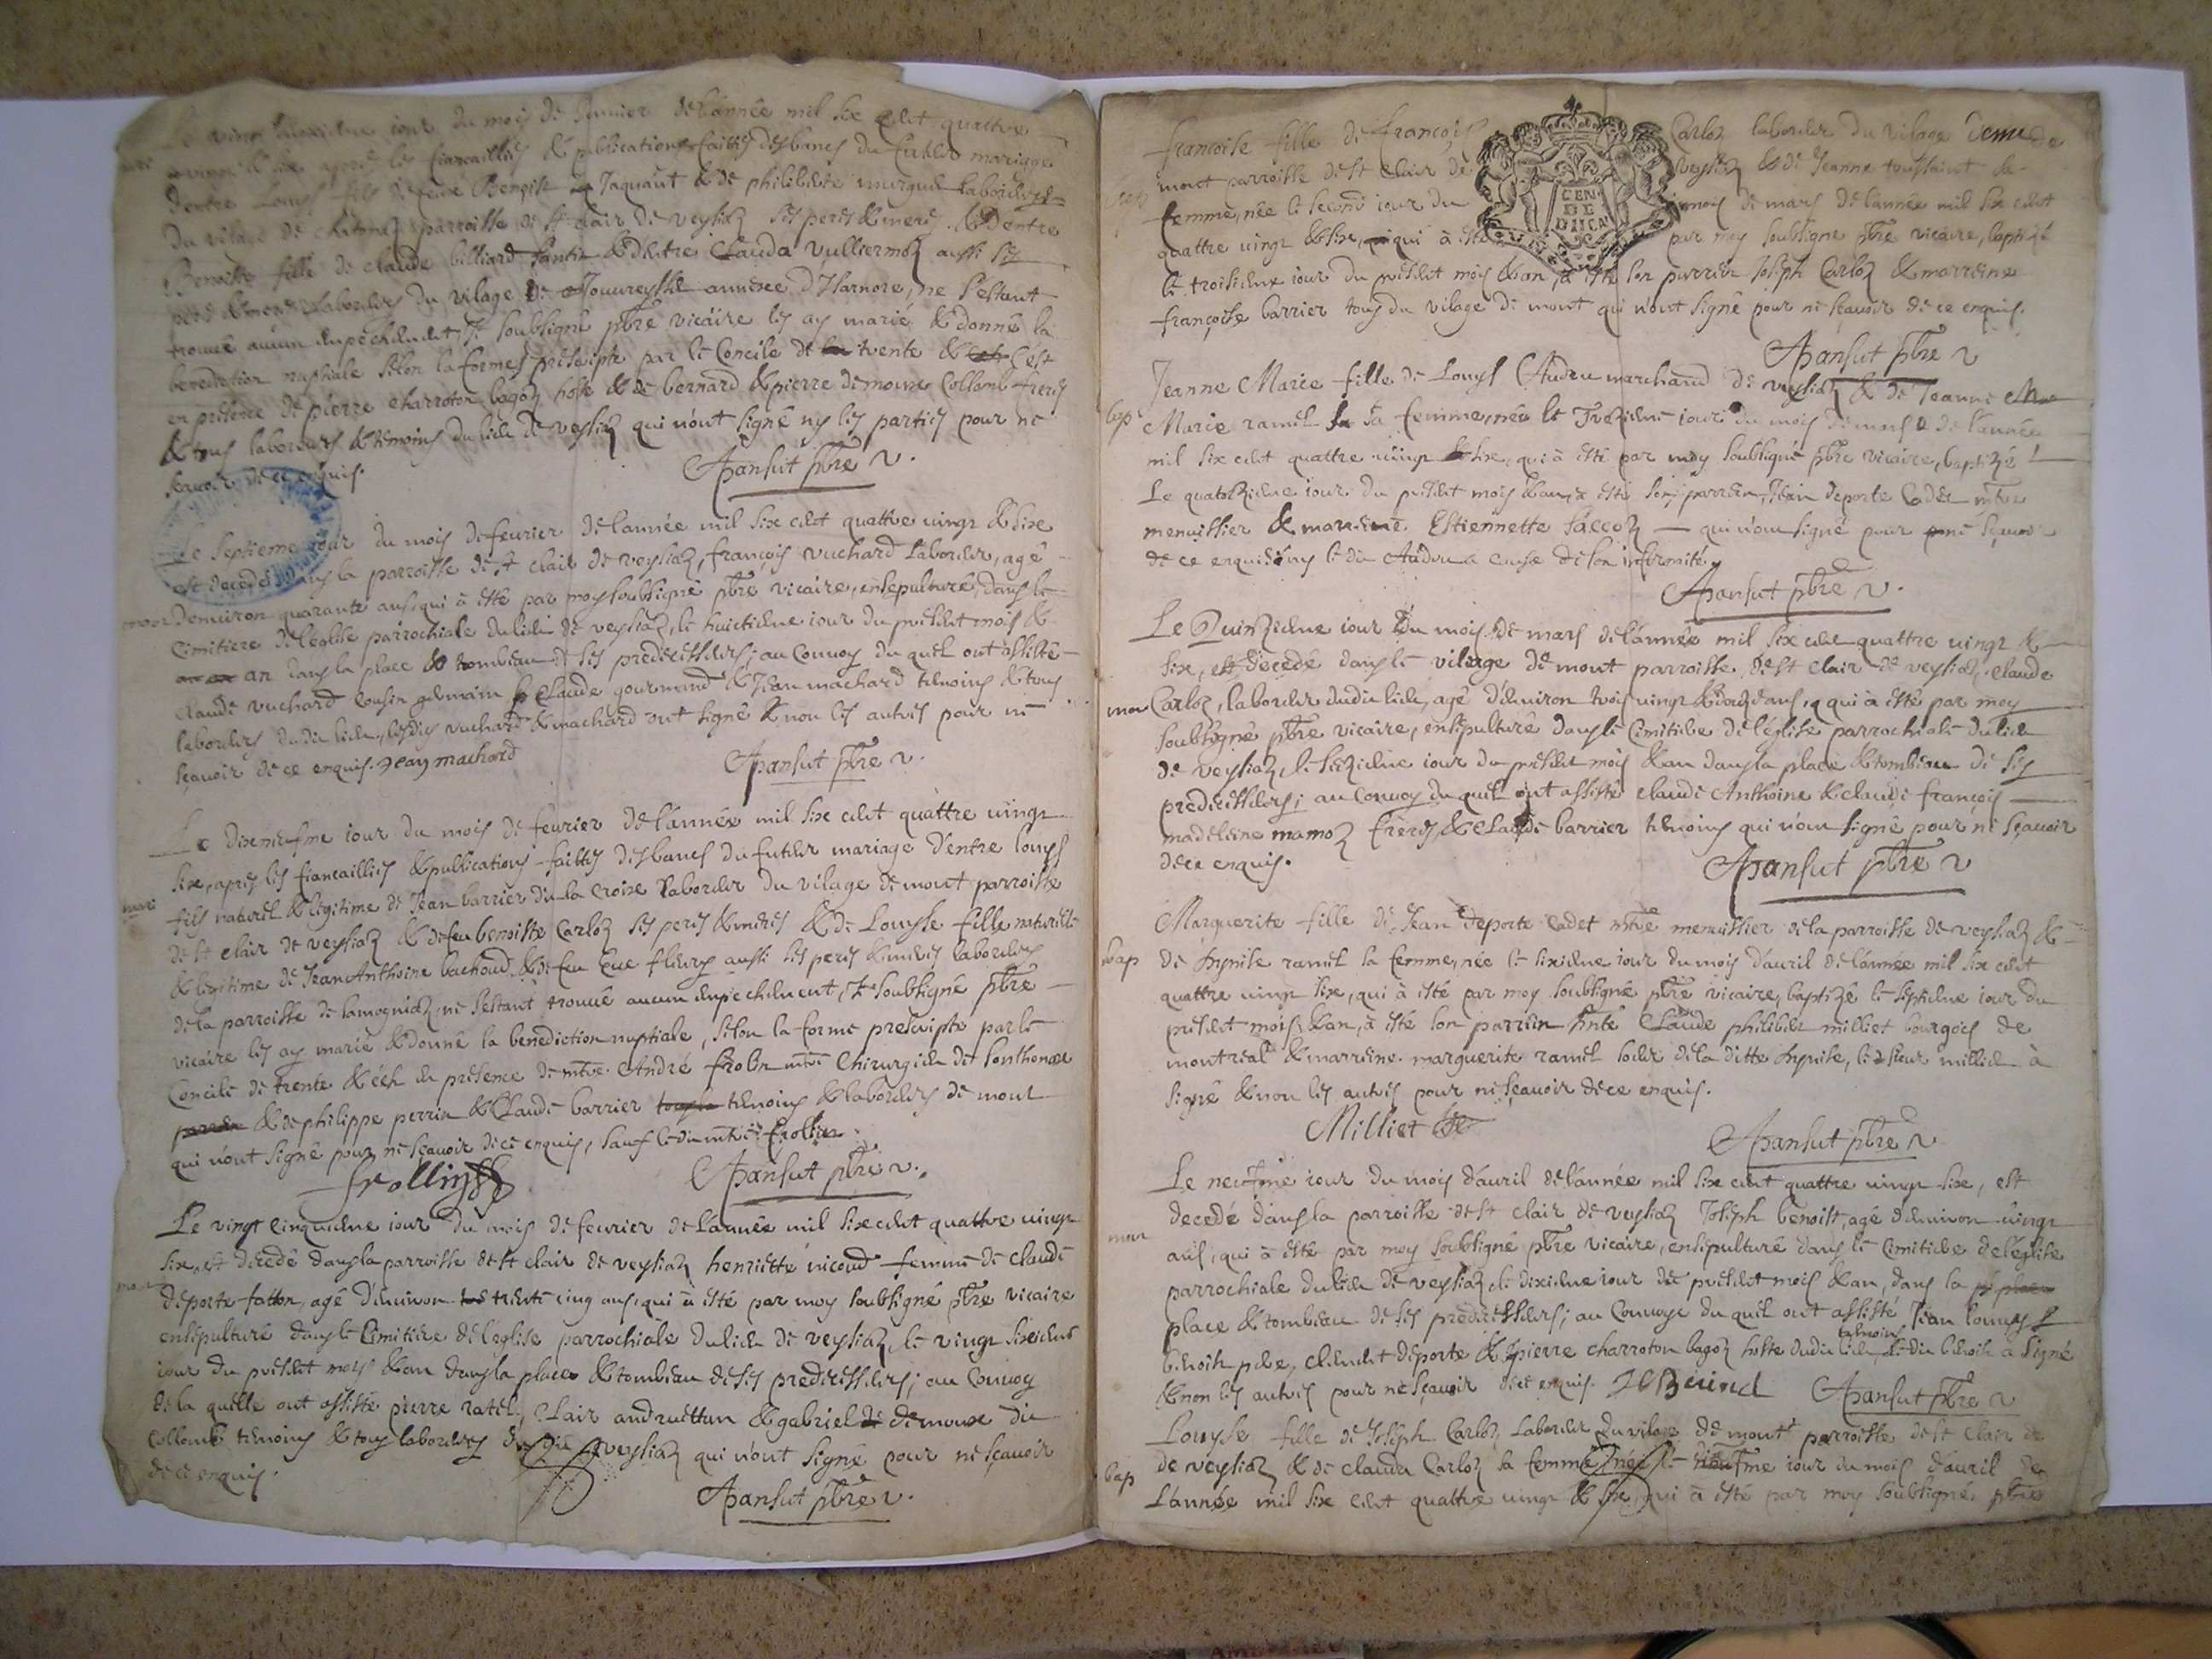 Le vingt iour du mois de Ianuier de l'année mil six cent quattre
vingt & six apres les fiancailles & publications faittes des bancs du futur mariage
d'entre Louys fils de feu Benoist Iaquant & de philiberte laboureurs
du vilage de parroisse de st clair de veysiaz ses peres & meres, & d'entre
Benoiste fille de claude billiard & Clauda vulliermoz aussi ses
pere & mere Laboureurs du vilage de annexe d'Isarnore, ne s'estant
trouué aucun empechement, Ie soubsigné pbre vicaire les ay marié & donné la
benediction nuptiale selon la forme prescripte par le Concile de trente & c'est
en presence de pierre charroton bagoz hoste & de bernard & pierre demoure Collomb freres
& tous laboureurs & temoins du lieu de veysiaz qui n'ont signé ny les parties pour ne
scauoir de ce enquis.
Apansut pbre v.
Le septieme iour du mois de feurier de l'année mil six cent quattre vingt & six
est decedé dans la parroisse de st clair de veysiaz, françois vuchard laboureur, agé
mor d'enuiron quarante ans, qui à esté par moy soubsigné pbre vicaire, ensepulturé, dans le
Cimitiere de l'eglise parrochiale du lieu de veysiaz, le huictieme iour du present mois &
an dans la place & tombeau de ses predecesseurs; au Conuoy du quel ont assisté
claude vuchard cousin germain claude gourmand & Iean machard temoins & tous
laboureurs du dit lieu, lesdits vuchard & machard ont signé & non les autres pour ne
sçauoir de ce enquis. Jean machard
Apansut pbre v.
Le dixneufme iour du mois de feurier de l'année mil six cent quattre vingt
six, apres les fiancailles & publications faittes des bancs du futur mariage d'entre louys
mari
fils naturel & legitime de Iean barrier dit la croix laboureur du vilage de mont parroisse
de st clair de veysiaz & de feu benoiste Carloz ses peres & meres & de Louyse fille naturelle
& legitime de Iean Anthoine bachoud & de feu Eue fleury aussi ses peres & meres laboureurs
de la parroisse de lamognioz, ne s'estant trouué aucun empechement, Ie soubsigné pbre
vicaire les ay marié & donné la benediction nuptiale, selon la forme prescripte par le
Concile de trente & c'est en presence de mtre André frolin mtre Chirurgien de Sonthonax
& de philippe perrin & Claude barrier temoins & laboureurs de mont
qui n'ont signé pour ne sçauoir de ce enquis, sauf le dit mtre frollin.
frollin
Apansut pbre v.
Le vingt cinquieme iour du mois de feurier de l'année mil six cent quattre vingt
six, est decedé dans la parroisse de st clair de veysiaz henriette nicoud femme de claude
deporte fatton, agé d'enuiron trente cinq ans, qui à esté par moy soubsigné pbre vicaire
ensepulturé dans le Cimitiere de l'eglise parrochiale du lieu de veysiaz, le vingt sixieme
iour du present mois & an dans la place & tombeau de ses predecesseurs; au Conuoy
de la quelle ont assisté pierre ratel, Clair andruettan & gabriel demoure dit
Collomb temoins & tous laboureurs du dit veysiaz qui n'ont signé pour ne sçauoir
de ce enquis.
Apansut pbre v.
francoise fille de françois Carloz laboureur du vilage de
mont parroisse de st clair de veysiaz & de Ieanne toussaint sa
femme, née le second iour du mois de mars de l'année mil six cent
CEN
DE
quattre vingt & six, qui à esté par moy soubsigné pbre vicaire, baptizé
le troisieme iour du present mois & an, à esté son parrein Ioseph Carloz & marreine
françoise barrier tous du vilage de mont qui n'ont signé pour ne sçauoir de ce enquis.
Apansut pbre v
Jeanne Marie fille de Louys Andru marchand de veysiaz & de Ieanne
bap Marie ramel sa femme, née le Trezieme iour du mois de mars de l'année
mil six cent quattre vingt & six, qui à esté par moy soubsigné pbre vicaire, baptizé
Le quatorzieme iour du present mois & an, à esté son parrein, Iean deporte Cadet mtre
menuissier & marreine Estiennette saccoz qui n'ont signé pour ne sçauoir
de ce enquis, ny le dit Andru a cause de son infirmité.
Apansut pbre v.
Le Quinzieme iour du mois de mars de l'année mil six cent quattre vingt &
six, est decedé dans le vilage de mont parroisse de st clair de veysiaz, claude
mor Carloz, laboureur dudit lieu, agé d'enuiron trois vingt & douze ans, qui à esté par moy
soubsigné pbre vicaire, ensepulturé dans le Cimitiere de l'eglise parrochiale du lieu
de veysiaz, le seizieme iour du present mois & an dans la place & tombeau de ses
predecesseurs; au Conuoy du quel ont assisté claude Anthoine & claude françois
madeleine mamoz freres, & Claude barrier temoins qui n'ont signé pour ne sçauoir
de ce enquis.
Apansut pbre v
Marguerite fille de Iean deporte Cadet mtre menuissier de la parroisse de veysiaz &
bap de Denise ramel sa femme, née le sixieme iour du mois d'auril de l'année mil six cent
quattre vingt six, qui à esté par moy soubsigné pbre vicaire, baptizé le septieme iour du
present mois & an, à esté son parrein Claude philibert milliet bourgois de
montreal & marreine marguerite ramel soeur de la ditte Denise, le sieur milliet à
signé & non les autres pour ne sçauoir de ce enquis.
Milliet
Apansut pbre v
Le neufme iour du mois d'auril de l'année mil six cent quattre vingt six, est
decedé dans la parroisse de st clair de veysiaz Ioseph benoist, agé d'enuiron vingt
mor
ans, qui à esté par moy soubsigné pbre vicaire, ensepulturé dans le Cimitiere de l'eglise
parrochiale du lieu de veysiaz, le dixieme iour du present mois & an, dans la
place & tombeau de ses predecesseurs; au Conuoye du quel ont assisté Iean louys
benoist pere, clement deporte & pierre charroton bagoz hoste dudit lieu temoins, le dit benoist à signé
& non les autres pour ne sçauoir de ce enquis.
Apansut pbre v
Louyse fille de Ioseph Carloz Laboureur du vilage de mont parroisse de st clair de
bap de veysiaz & de clauda Carloz sa femme née le neufme iour du mois d'auril de
L'année mil six cent quattre vingt & six, qui à esté par moy soubsigné pbre